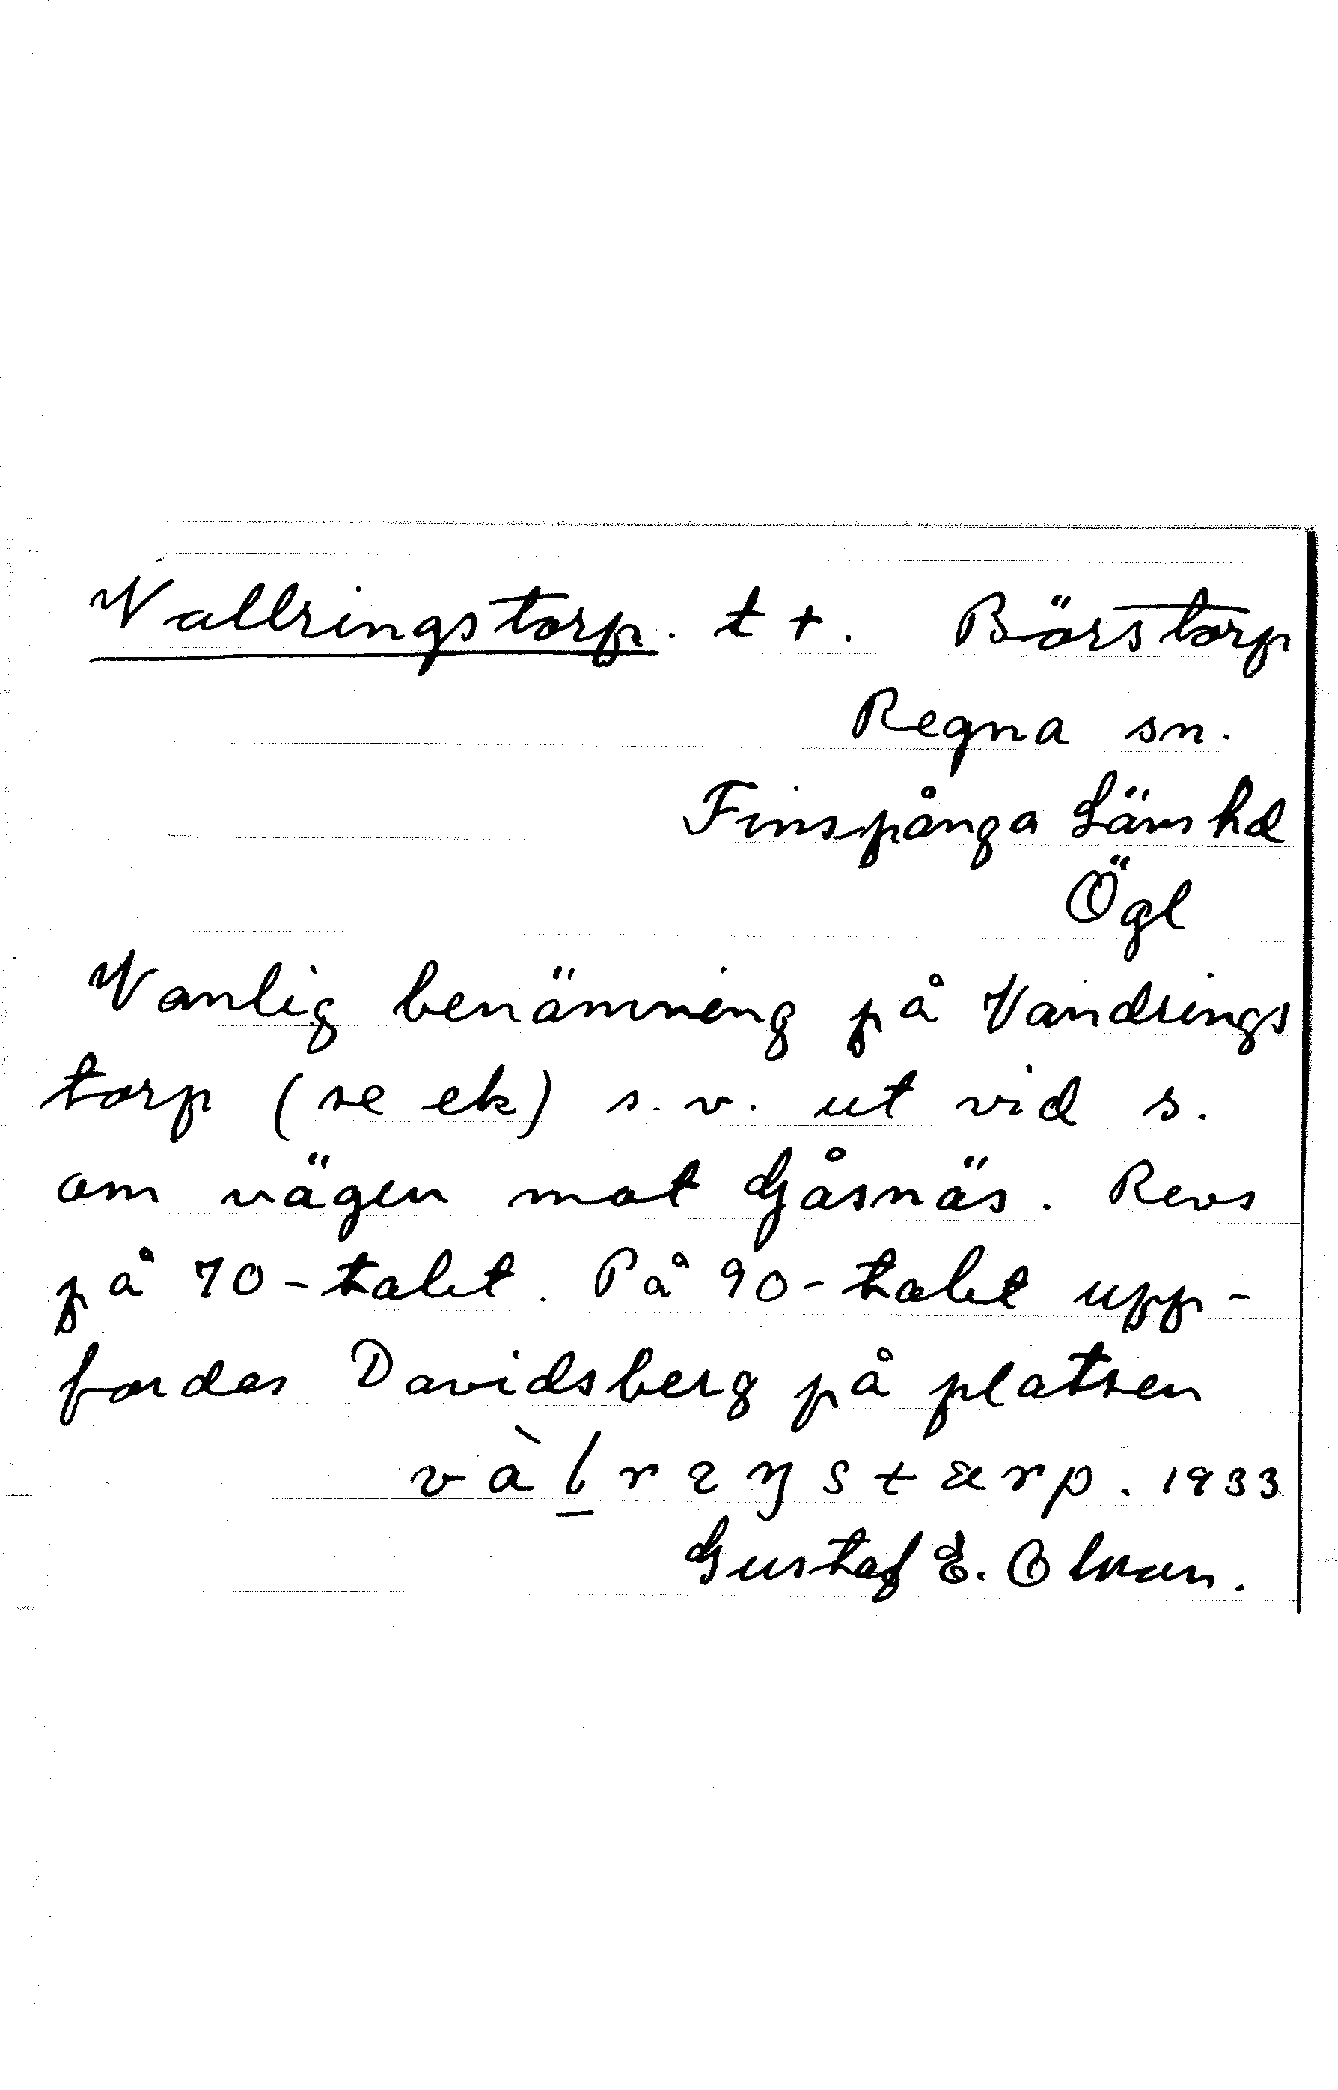 Vallringstorp. t +. Börstorp
Regna sn.
Finspånga Läns hd
Ögl
Vanlig benämning på Vandrings
torp (se ek) s.v. ut vid s.
om vägen mot Gåsnäs. Revs
på 70-talet. På 90-talet upp-
fordes Davidsberg på platsen
1933
Gustaf E. Olsson.